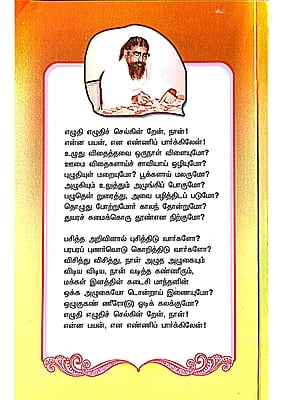 எழுதி எழுதிச் செல்கின் றேன், நான்!
என்ன பயன், என எண்ணிப் பார்க்கிலேன்!
உழுது விதைத்தவை ஒருநாள் விளையுமோ?
ஊமை விதைகளாய்ச் சாவியாய் ஒழியுமோ?
புழுதியுள் மறையுமோ? பூக்களாய் மலருமோ?
அழுகியும் உலுத்தும் அமுங்கிப் போகுமோ?
பழுதென் றுரைத்து, அவை பழித்திடப் படுமோ?
தொழுது போற்றுமோர் காலந் தோன்றுமோ?
துயரச் சுமைக்கொரு தூணென நிற்குமோ?
பசித்த அறிவினால் புசித்திடு வார்களோ?
பரபரப் புணர்வொடு கொறித்திடு வார்களோ?
விசித்து விசித்து, நான் அழுத அழுகையும்
விடிய விடிய, நான் வடித்த கண்ணீரும்,
மக்கள் இனத்தின் கடைசி மாந்தனின்
ஒக்க அழுகையோ டொன்றாய் இணையுமோ?
ஒழுகுகண் ணீரோ(டு) ஓடிக் கலக்குமோ?
எழுதி எழுதிச் செல்கின் றேன், நான்!
என்ன பயன், என எண்ணிப் பார்க்கிலேன்!